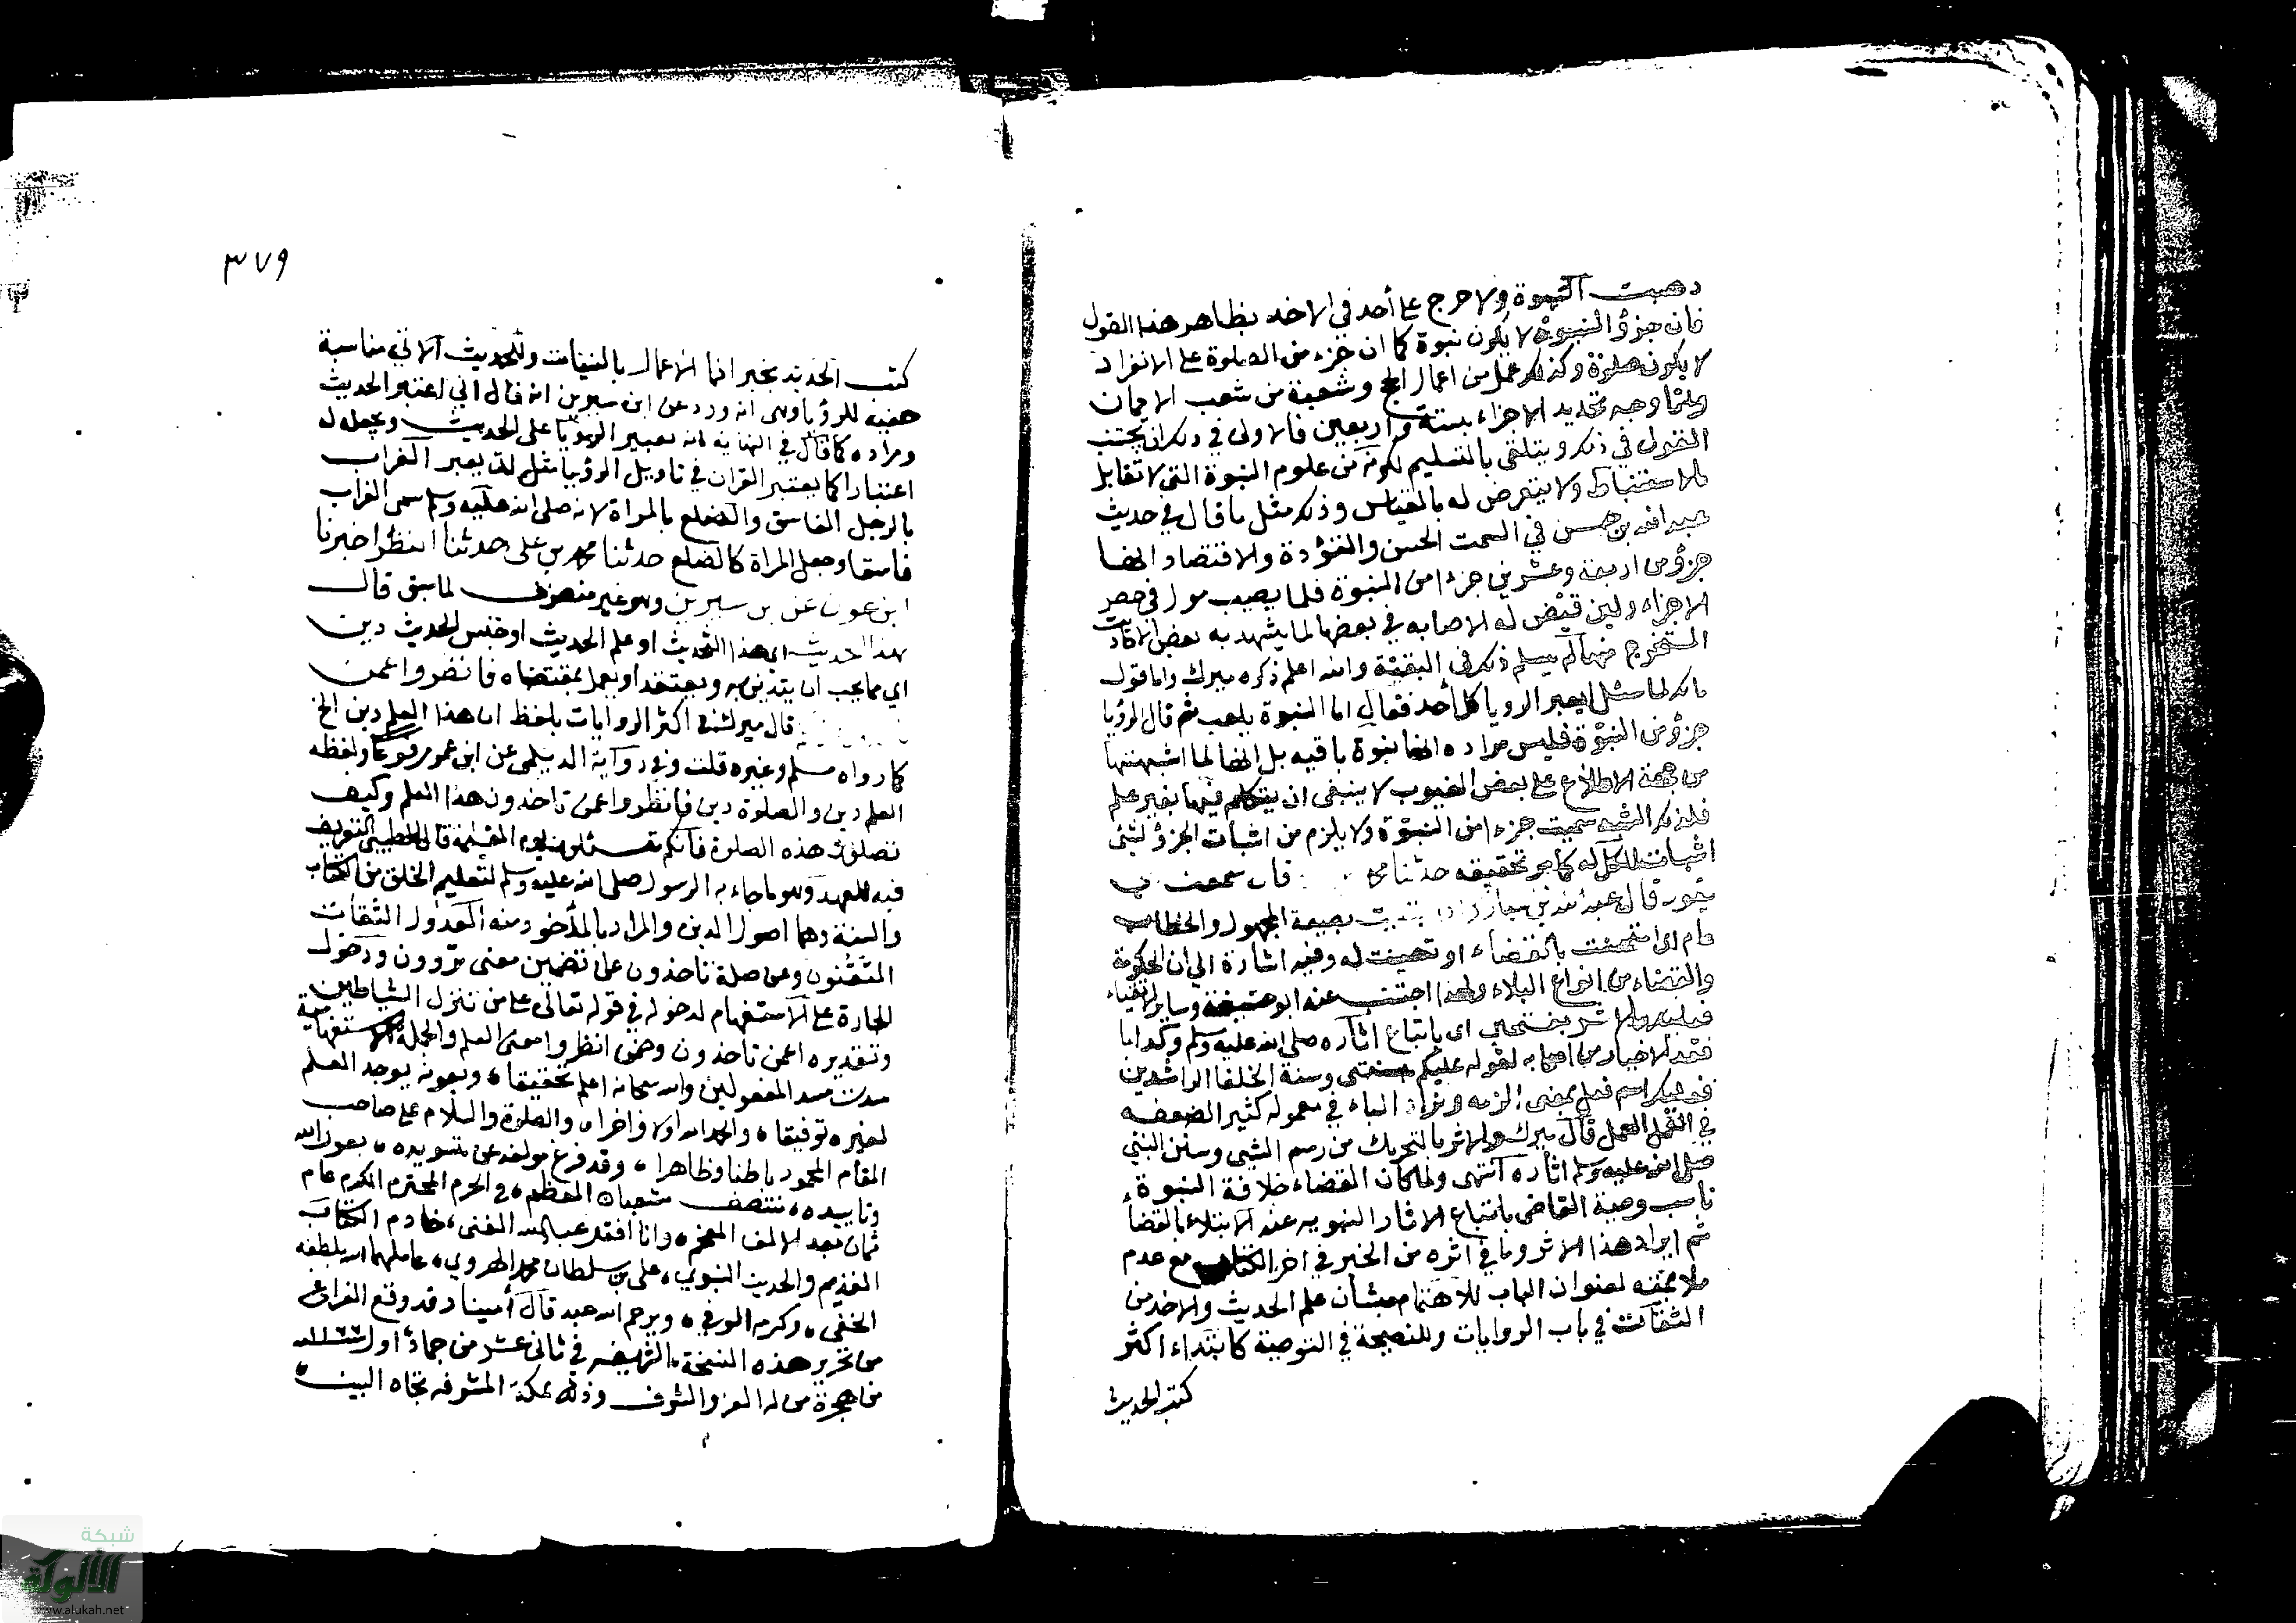 ذهبت النبوة ولا حرج على أحد في الاخذ بظاهر هذا القول
فان جزؤ النبوة لا يكون نبوة كما ان جزء من الصلوة على الانفراد
لا يكون صلوة وكذلك عمل من اعمال الحج وشعبة من شعب الايمان
واما وجه تحديد الاجزاء بستة واربعين فالاولى في ذلك ان يجتنب
القول في ذلك ويتلقى بالتسليم لكونه من علوم النبوة التي لا تقابل
بالاستنباط ولا يتعرض له بالقياس وذلك مثل ما قال في حديث
عبد الله بن في السمت الحسن والتؤدة والاقتصاد انها
جزؤ من اربعة وعشرين جزءا من النبوة فلما يصيب مول في حصر
الاجزاء ولين قيض له الاصابه في بعضها لما يشهد به بعض الاحاديث
المستخرج منها لم يسلم ذلك في البقية والله اعلم ذكره ميرك واما قول
مالك لما سئل ايعبر الرويا كل أحد فقال اما النبوة يلعب ثم قال الرؤيا
جزؤ من النبوة فليس مراده انها نبوة باقيه بل انها لما اشبهتها
من جهة الاطلاع على بعض الغيوب لا ينبغي ان يتكلم فيها بغير علم
فلذلك الشبه سميت جزءا من النبوة ولا يلزم من اثبات الجزؤ لشئ
اثبات الكل له كما مر تحقيقه حدثنا محمد قال سمعت
يقول قال عبد الله بن مبارك بصيغة المجهول والخطاب
عام اى امتحنت بالقضاء او تعينت له وفيه اشارة الى ان الحكومة
والقضاء من انواع البلاء ولهذا اجتنب عنه ابو حنيفة وساير الاتقياء
فعليك بالاثر بفتحتين اى باتباع اثاره صلى الله عليه وسلم وكذا اما
لقوله عليكم بسنتى وسنة الخلفا الراشدين
فعليك اسم فعل بمعنى الزمه ويزاد الباء في معموله كثير الضعفه
في العمل قال ميرك والاثر بالتحريك من رسم الشيى وسنن النبي
صلى الله عليه وسلم اثاره انتهى ولما كان القضاء خلافة النبوة
ناسب وصية القاضى باتباع الاثار النبويه عند الابتلاء بالقضاء
ثم ايراد هذا الاثر وما في اثره من الخبر في اخر الكتاب مع عدم
ملايمته لعنوان الباب للاهتمام بشأن علم الحديث والاخذ من
الثقات في باب الروايات وللنصيحة في التوصية كابتداء اكثر
كتب الحديث
٣٧٩
كتب الحديث بخبر انما الاعمال بالنيات وللحديث الاتي مناسبة
خفيه للرؤيا وهى انه ورد عن ابن سيرين انه قال اني اعتبر الحديث
ومراده كما قال في النهايه انه يعبير الرويا على الحديث ويجعله له
اعتبارا كما يعتبر القران في تاويل الرؤيا مثل ان يعبر الغراب
بالرجل الفاسق والضلع بالمراة لانه صلى الله عليه وسلم سمى الغراب
فاسقا وجعل المراة كالضلع حدثنا محمد بن على حدثنا النظر اخبرنا
ابن عون عن بن سيرين وهو غير منصرف لما سبق قال
هذا الحديث اى هذا التحديث او علم الحديث او جنس الحديث دين
اي مما يجب ان يتدين به ويعتقد او يعمل بمقتضاه فانظروا عمن
قال ميرك في اكثر الروايات بلفظ ان هذا العلم دين الخ
كما رواه مسلم وغيره قلت وفي رواية الديلمى عن ابن عمر مرفوعا ولفظه
العلم دين والصلوة دين فانظروا عمن تاخذون هذا العلم وكيف
تصلون هذه الصلوة فانكم تسئلون يوم القيامة قال الطيبى التعريف
فيه للعهد وهو ما جاء به الرسول صلى الله عليه وسلم لتعليم الخلق من الكتاب
والسنة وهما اصول الدين والمراد بالمأخوذ منه العدول الثقات
المتقنون وعن صلة تاخذون على تضمين معنى تروون ودخول
الجارة على الاستفهام لدخوله في قوله تعالى على من تنزل الشياطين
وتقديره اعمن تاخذون وضمن انظروا معنى العلم والجملة الاستفهامية
سدت مسد المفعولين والله سبحانه اعلم تحقيقا ه وبعونه يوجد العلم
لغيره توفيقا ه والحمد لله اولا واخرا ه والصلوة والسلام على صاحب
المقام المحمود باطنا وظاهرا ه وقد فرغ مولفه عن تسويده ه بعون الله
وتاييده ه منتصف شعبان المعظم ه في الحرم المحترم المكرم عام
ثمان بعد الالف المفخم ه وانا افقر عباد الله الغنى ه خادم الكتاب
القديم والحديث النبوي ه على بن سلطان محمد الهروي ه عاملهما الله بلطفه
الخفى ه وكرمه الوفي ه ويرحم الله عبد قال أمينا وقد وقع الفراغ
من تحرير هذه النسخة الشريفه في ثانى عشر من جماد اول
من هجرة من له العز والشرف وذلك بمكة المشرفه تجاه البيت
شبكة
الألوكة
www.alukah.net